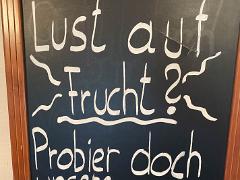 Lust auf
Frucht?
Probier doch
unsere